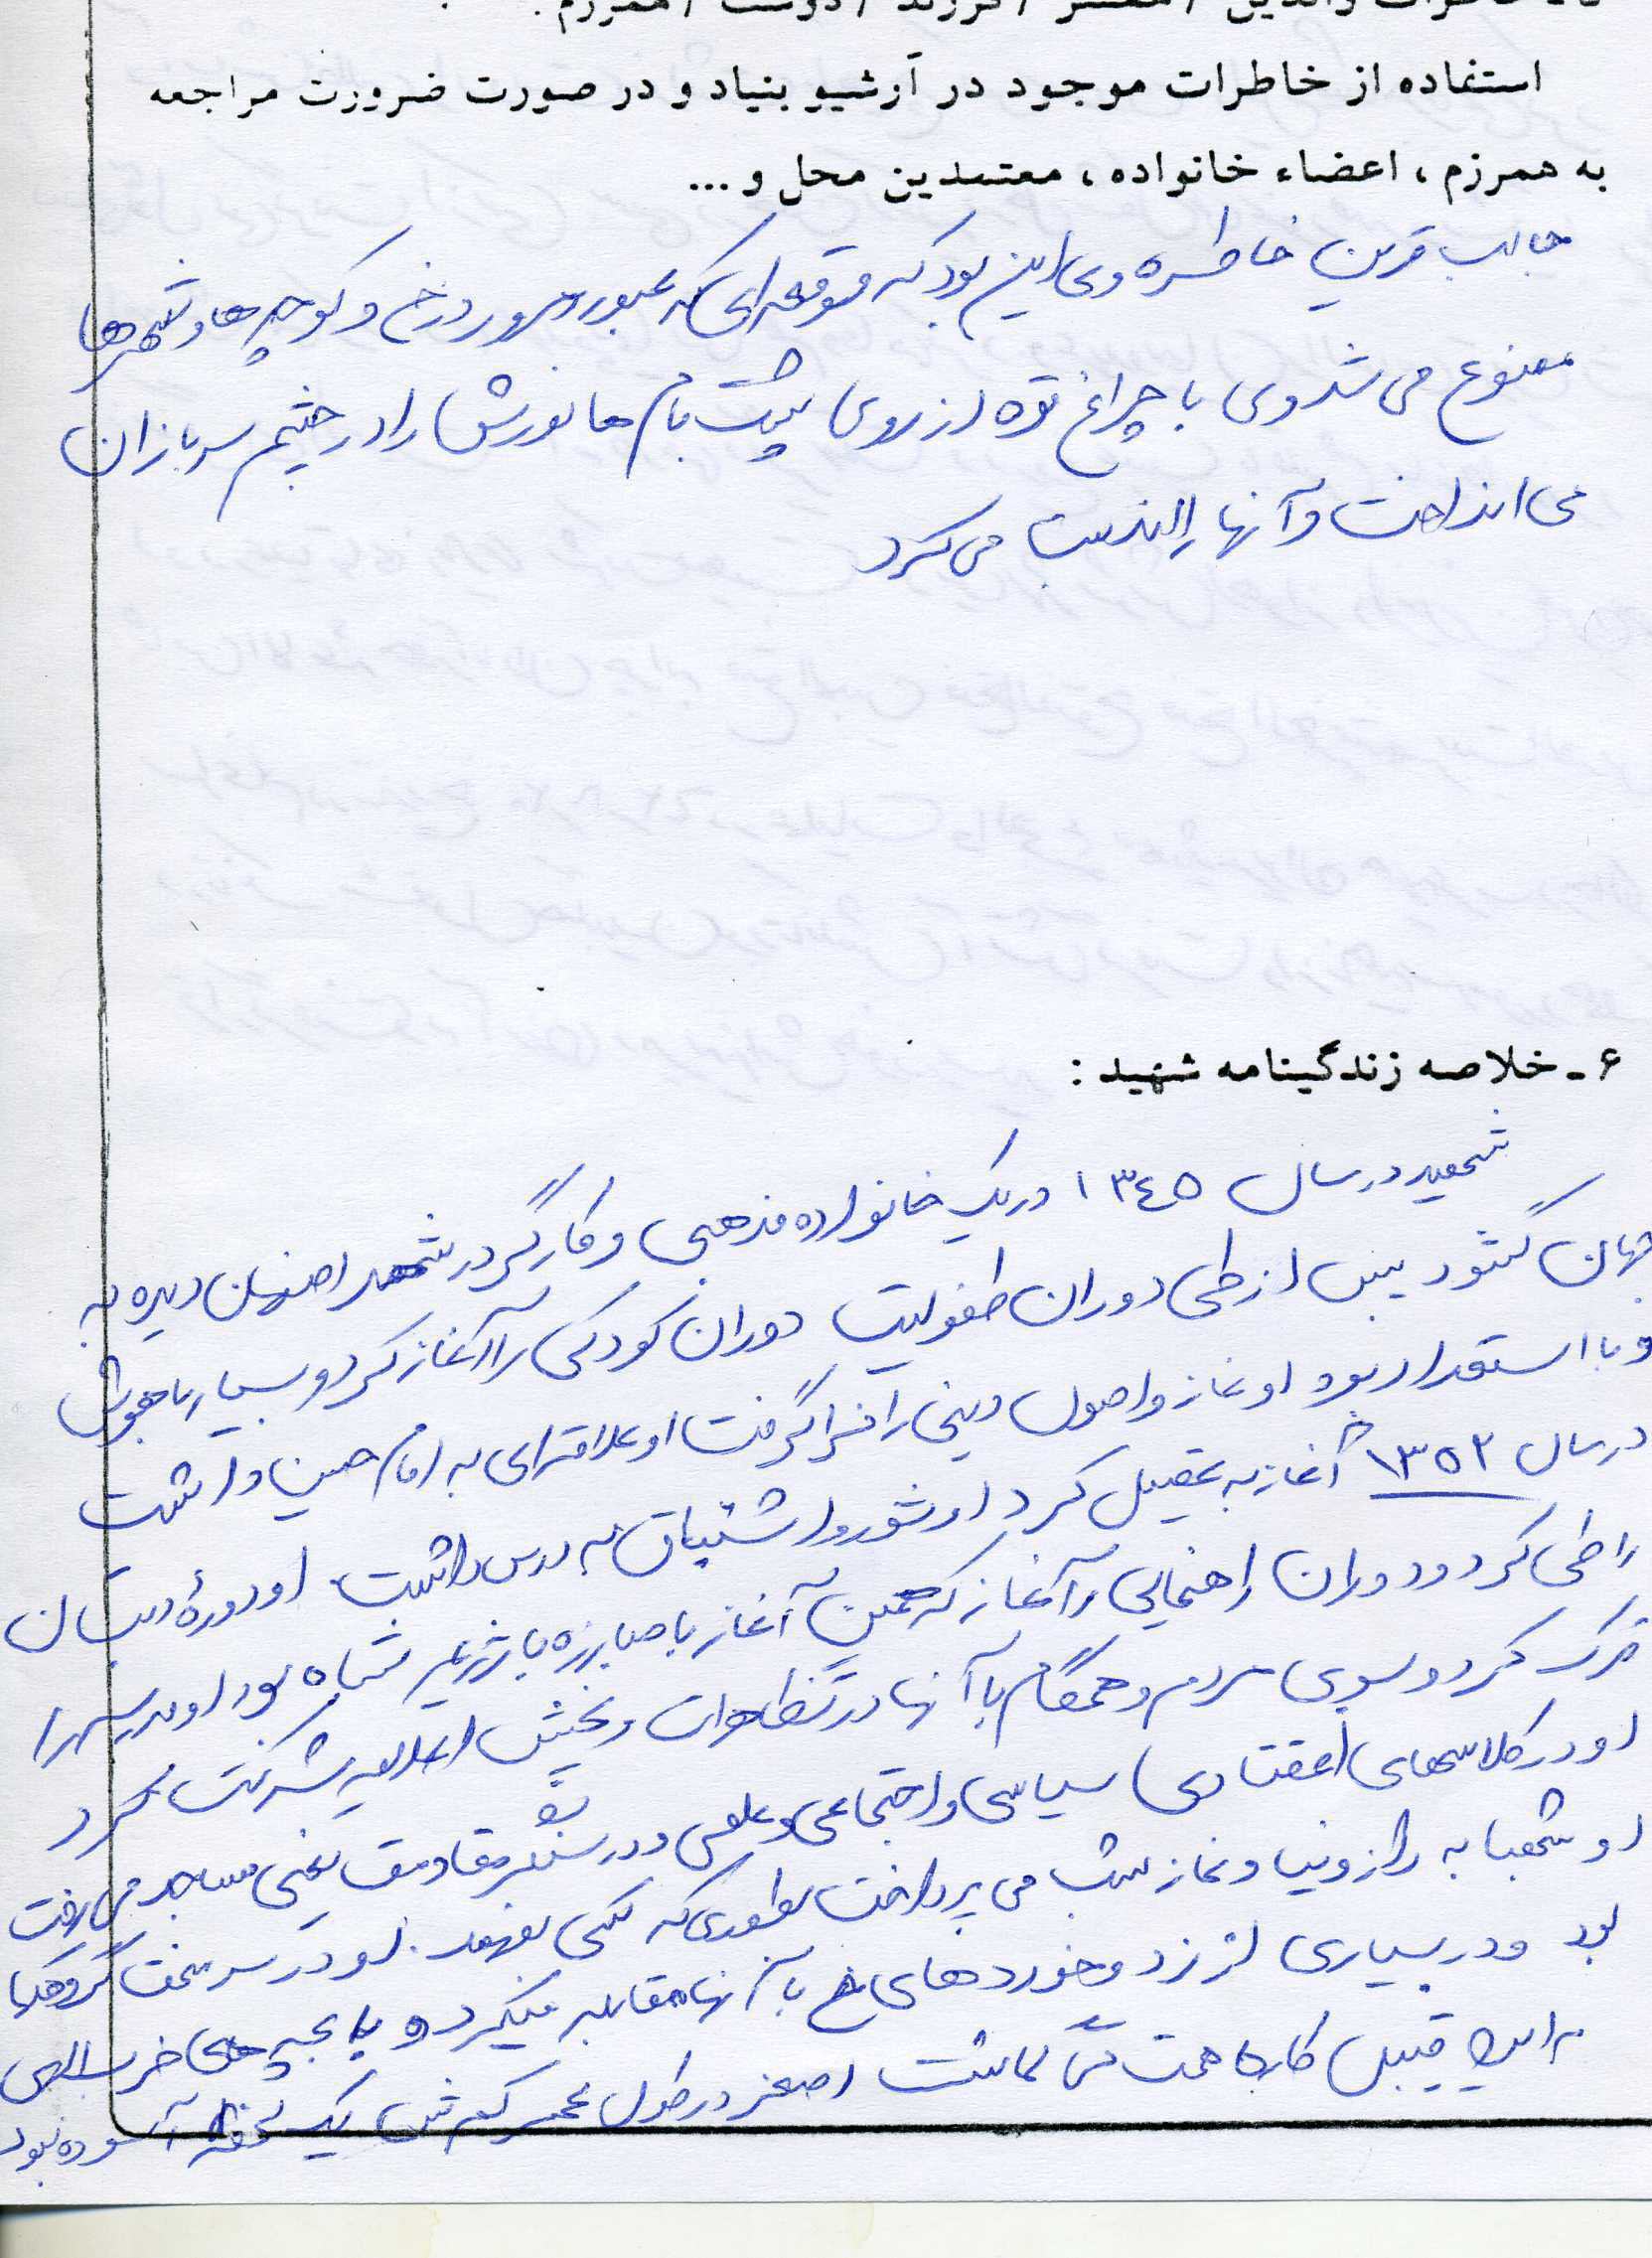 ۵ ـ خاطرات والدین / همسر / فرزند / دوست / همرزم .
استفاده از خاطرات موجود در آرشیو بنیاد و در صورت ضرورت مراجعه
به همرزم ، اعضاء خانواده ، معتمدین محل و ...
جالب ترین خاطره وی این بود که موقعه ای که عبور و مرور در خ و کوچه ها و شهرها
ممنوع می شد وی با چراغ قوه از روی پشت بام ها نورش را در چشم سربازان
می انداخت و آنها را اذیت می کرد
۶ ـ خلاصه زندگینامه شهید :
شهید در سال ۱۳٤۵ در یک خانواده مذهبی و کارگر در شهر اصفهان دیده به
جهان گشود پس از طی دوران طفولیت دوران کودکی را آغاز کرد و بسیار باهوش
و با استعداد بود او نماز و اصول دینی را فرا گرفت او علاقه ای به امام حسین داشت
در سال ۱۳۵۲ آغاز به تحصیل کرد او شور و اشتیاق به درس داشت او دورهٔ دبستان
را طی کرد و دوران راهنمایی را آغاز که همین آغاز با مبارزه با رژیم شاه بود او مدرسه را
ترک کرد و بسوی مردم و همگام با آنها در تظاهرات و پخش اعلامیه شرکت کرد
او در کلاسهای اعتقادی سیاسی و اجتماعی و علمی و در سنگر مقاومت یعنی مساجد می رفت
او شبها به راز و نیاز و نماز شب می پرداخت بطوری که کسی نفهمد . او در سر سخت گروهکها
بود و در بسیاری از زد و خوردهای با آنها مقابله میکرد و با بچه های حزب اللهی
به این قبیل کارها همت می گماشت اصغر در طول عمر کم ش یک لحظه آسوده نبود